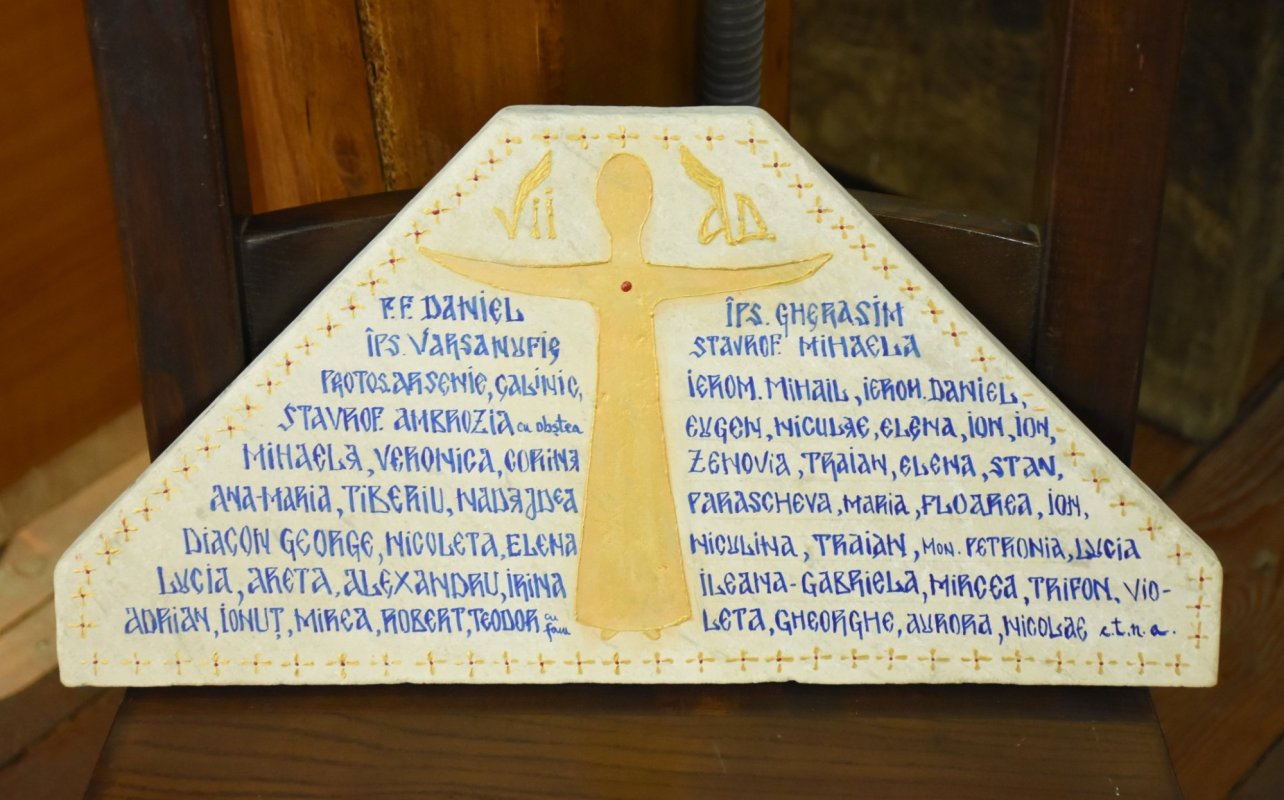 Vii
AD
F.F. DANIEL
ÎPS. VARSANUFIE
PROTOS. ARSENIE, GALINIC,
STAVROF. AMBROZIA cu obștea
MIHAELA, VERONICA, CORINA
ANA-MARIA, TIBERIU, NADEJDEA
DIACON GEORGE, NICOLETA, ELENA
LUCIA, ARETA, ALEXANDRU, IRINA
ADRIAN, IONUȚ, MIREA, ROBERT, TEODOR cu fam
ÎPS. GHERASIM
STAVROF. MIHAELA
IEROM. MIHAIL, IEROM. DANIEL,
EUGEN, NICULAE, ELENA, ION, ION,
ZENOVIA, TRAIAN, ELENA, STAN,
PARASCHEVA, MARIA, FLOAREA, ION,
NICULINA, TRAIAN, MON. PETRONIA, LUCIA
ILEANA-GABRIELA, MIRCEA, TRIFON, VIO-
LETA, GHEORGHE, AURORA, NICOLAE ș.t.n.a.